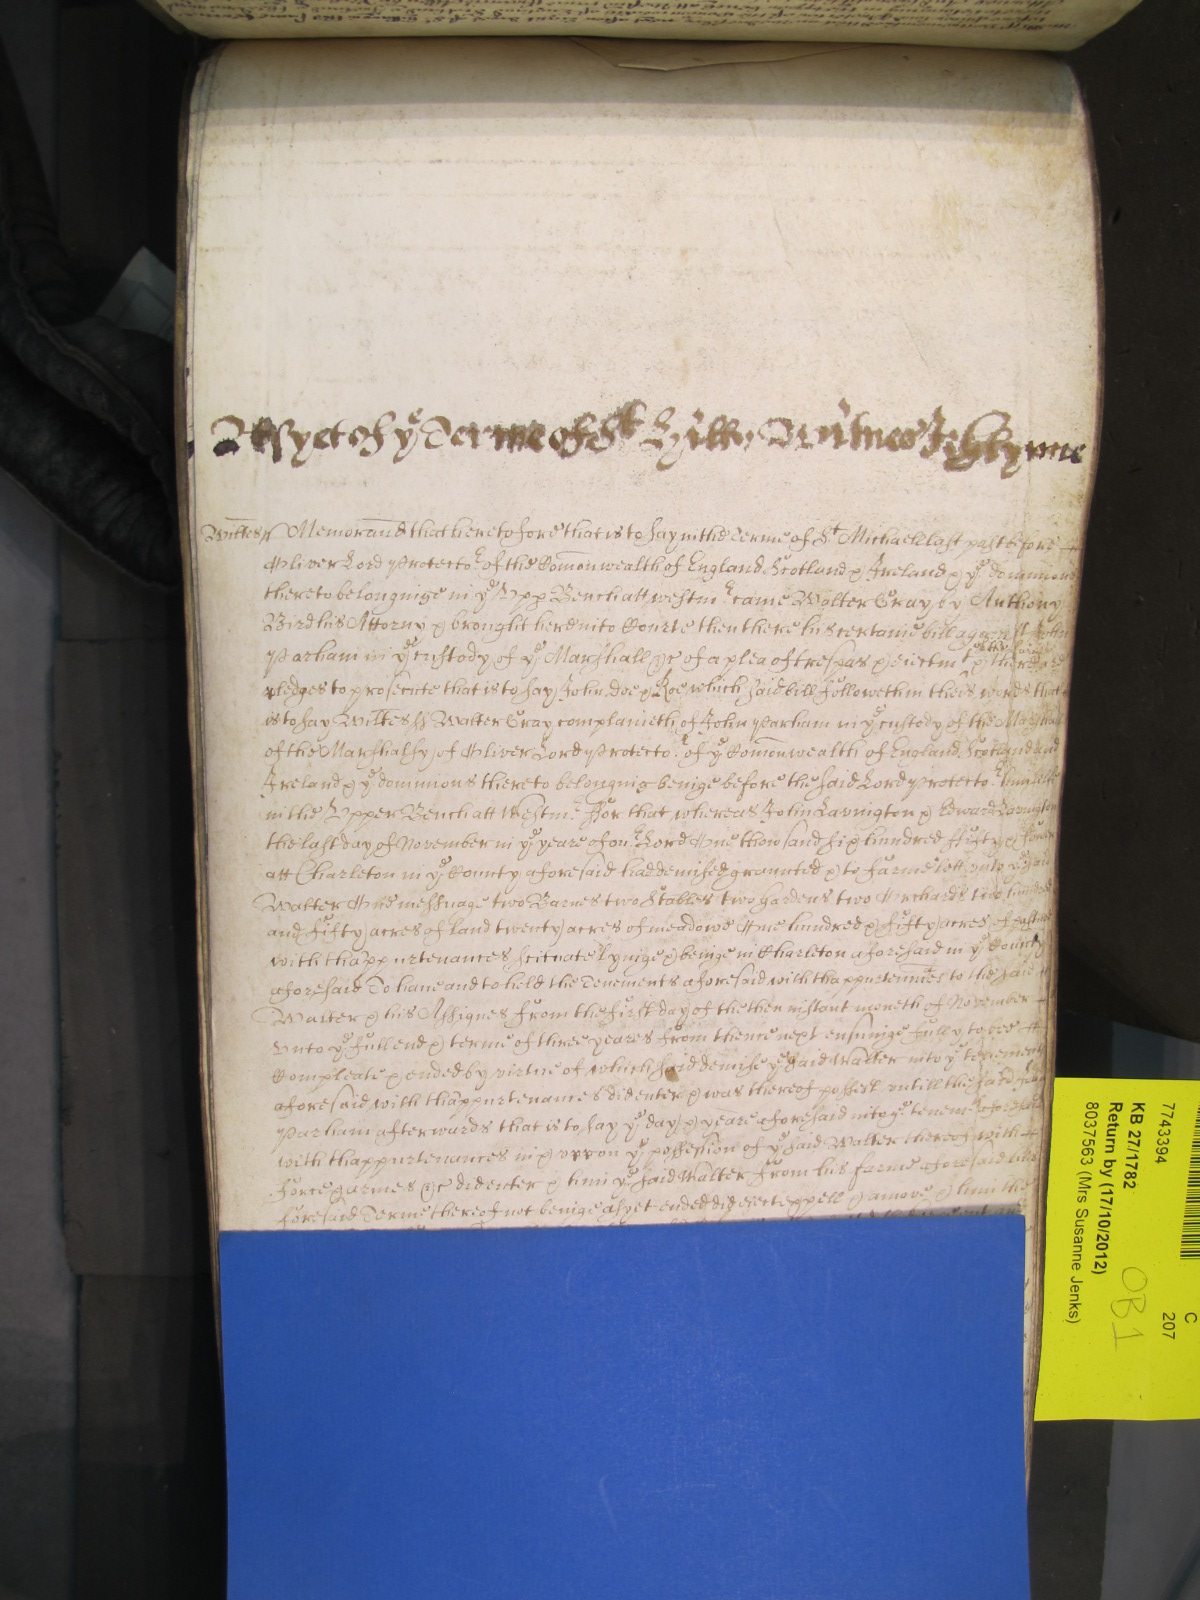 As yet of ye Terme of St Hillary Witnes
Wiltes ss Memorand that heretofore that is to say in the Terme of St Michaell last past before
Oliver Lord Protector of the Comonwealth of England Scotland & Ireland & ye dominions
thereto belonginge in ye Upp Bench att westmr came Walter Gray by Anthony
Bird his Attorny & brought here into Courte then there his certaine bill against John
Parham in ye custody of ye Marshall &c of a plea of trespas & eiectmt & there are
pledges to prosecute that is to say John doe & Roe which said bill followeth in theis words that
is to say Wiltes ss Walter Gray complaineth of John Parham in ye custody of the Marshall
of the Marshalsy of Oliver Lord Protector of ye Comonwealth of England Scotland and
Ireland & ye dominions thereto belonging beinge before the said Lord Protector himselfe
in the Upper Bench att Westmr For that whereas John Lavington & Edward Lavington
the last day of November in ye yeare of our Lord One thowsand six hundred fifty & foure
att Charleton in ye County aforesaid had demised graunted & to farme lett unto ye said
Walter One messuage two Barnes two Stables two gardens two Orchards two hundred
and fifty acres of land twenty acres of meadowe One hundred & fifty acres of pasture
with thappurtenances scituate lyinge & beinge in Charleton aforesaid in ye County
aforesaid To have and to hold the Tenements aforesaid with thappurtennces to the said
Walter & his Assignes from the first day of the then instant moneth of November
unto ye full end & terme of three yeares from thence next ensuinge fully to bee
Compleate & ended by virtue of which said demise ye said Walter into ye tenements
aforesaid with thappurtenances did enter & was thereof possest untill the said John
Parham afterwards that is to say ye day & yeare aforesaid into ye tenemts aforesaid
with thappurtenances in & uppon ye possession of ye said Walter thereof with
force & armes &c did enter & him ye said Walter from his farme aforesaid
foresaid Terme thereof not beinge as yet ended did eiect expell & amove & him the
7743394
KB 27/1782
Return by (17/10/2012)
8037563 (Mrs Susanne Jenks)
C
207
OB1